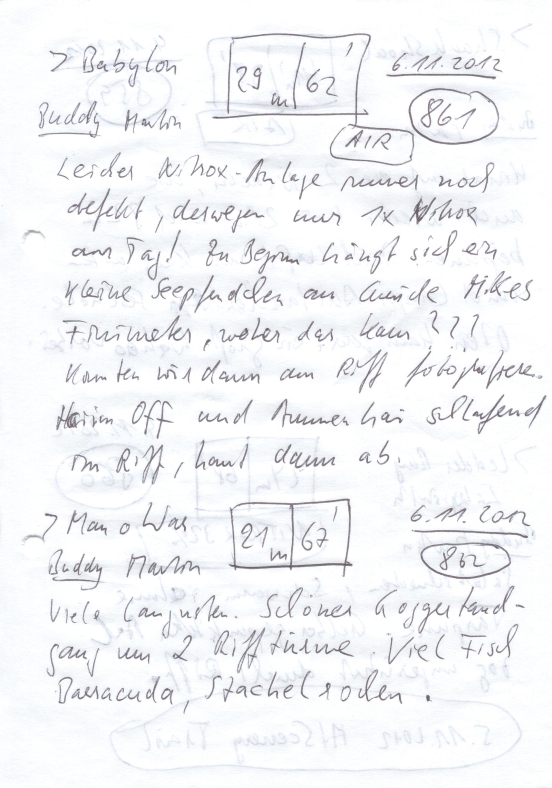 > Babylon
29 m | 62'
6.11.2012
Buddy Martin
861
AIR
Leider Nitrox-Anlage immer noch
defekt, deswegen nur 1x Nitrox
am Tag! Zu Beginn hängt sich ein
kleine Seepferdchen an Guide Mikes
Finimeter, woher das kam???
Konnten wir dann am Riff fotografieren.
Hai im Off und Ammenhai schlafend
im Riff, haut dann ab.
> Man o War
21 m | 67'
6.11.2012
Buddy Martin
862
Viele Langusten. Schöner
gang um 2 Rifftürme. Viel Fisch
Barracuda, Stachelrochen.